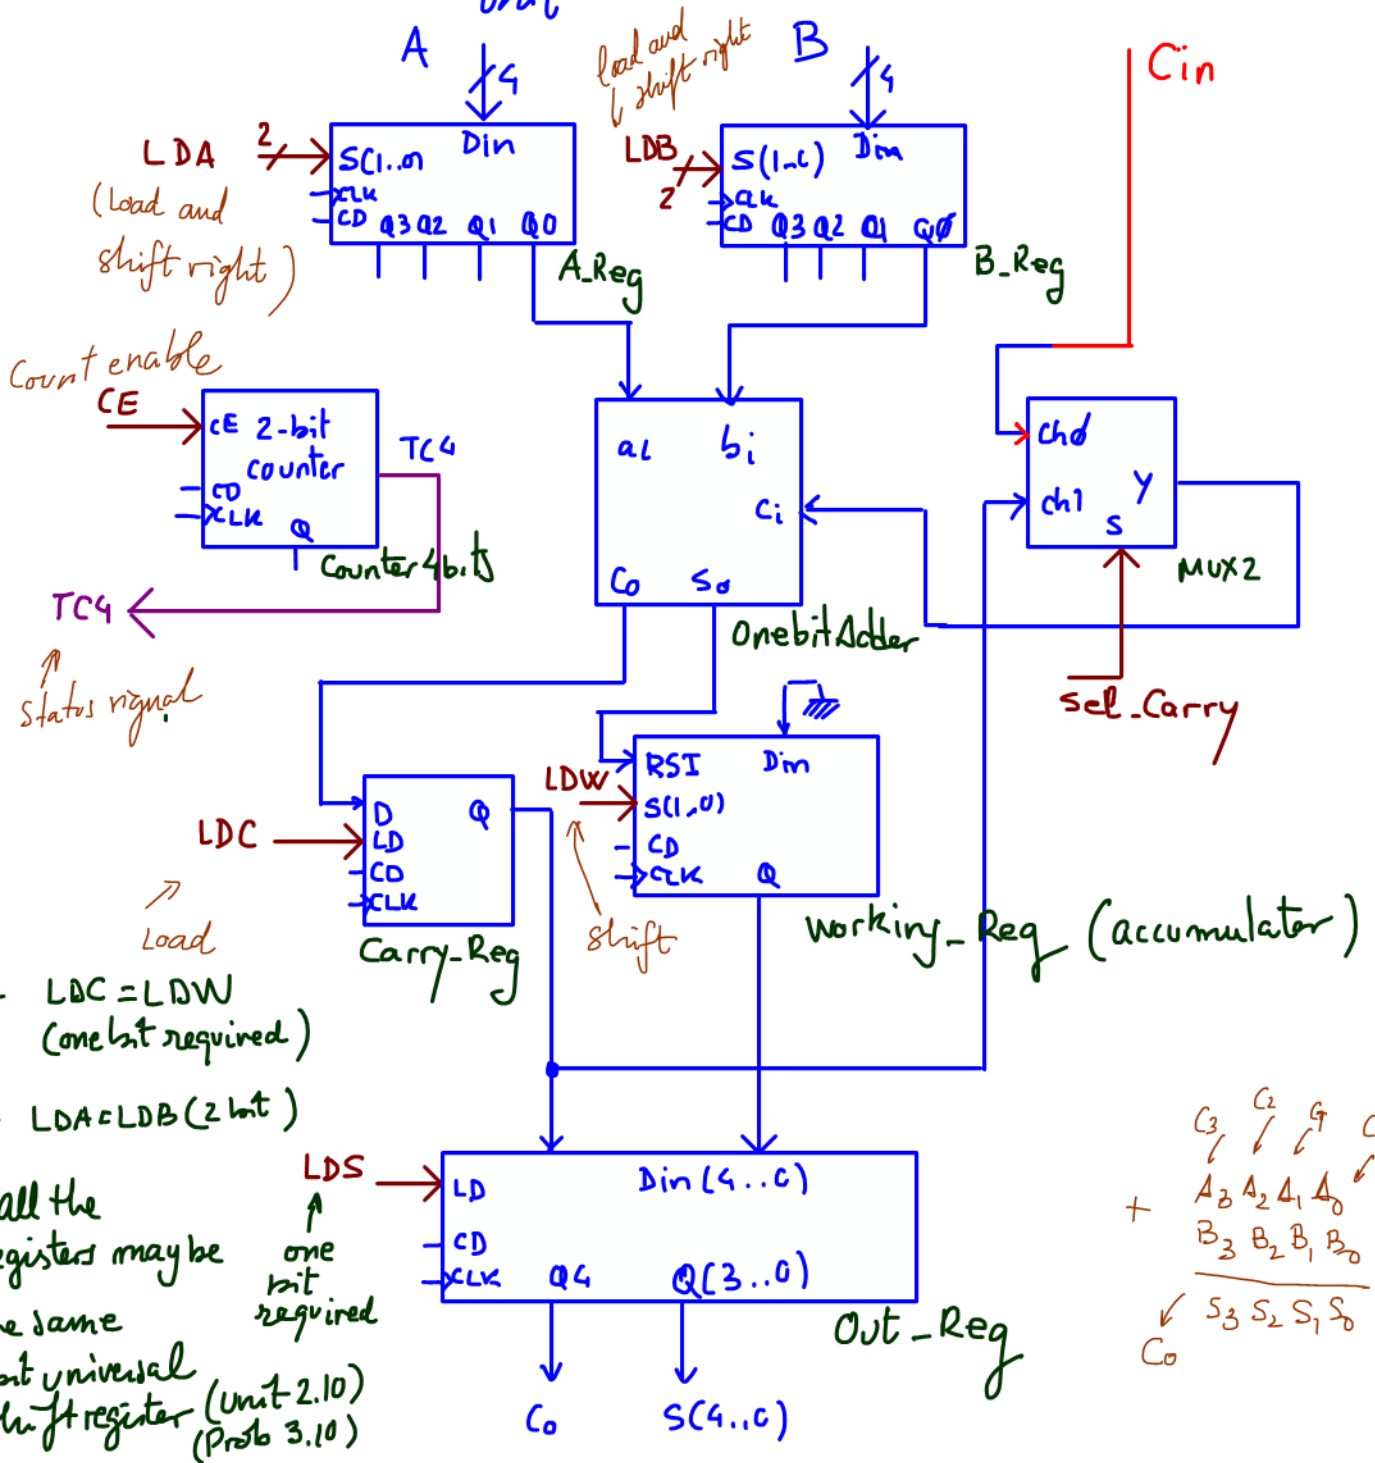 A
4
load and
shift right
B
4
Cin
LDA
2
S(1..0)
Din
CLK
CD
Q3 Q2 Q1 Q0
A_Reg
(Load and
shift right)
LDB
2
S(1..0)
Din
CLK
CD
Q3 Q2 Q1 Q0
B_Reg
Count enable
CE
CE 2-bit
counter
CD
CLK
Q
TC4
Counter4bits
TC4
Status signal
ai
bi
Ci
Co
So
OnebitAdder
ch0
ch1
Y
S
MUX2
Sel_Carry
LDC
Load
D
Q
LD
CD
CLK
Carry_Reg
LDW
shift
RSI
Din
S(1,0)
CD
CLK
Q
Working_Reg (accumulator)
- LDC = LDW
(one bit required)
- LDA = LDB (2 bit)
all the
registers may be
same
universal
shift register (Unit 2.10)
(Prob 3.10)
LDS
one
bit
required
LD
Din(4..0)
CD
CLK
Q4
Q(3..0)
Out_Reg
Co
S(4..0)
C3 C2 C1
A3 A2 A1 A0
+
B3 B2 B1 B0
S3 S2 S1 S0
Co